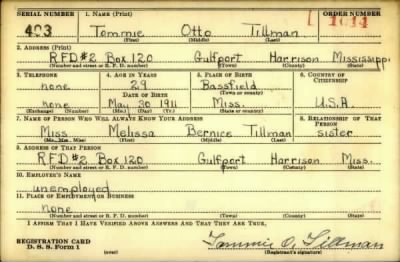 SERIAL NUMBER 1. NAME (Print) ORDER NUMBER
403 Tommie Otto Tillman 1014
(First) (Middle) (Last)
2. ADDRESS (Print)
RFD#2 Box 120 Gulfport Harrison Mississippi
(Number and street or R. F. D. number) (Town) (County) (State)
3. TELEPHONE 4. AGE IN YEARS 5. PLACE OF BIRTH 6. COUNTRY OF CITIZENSHIP
none 29 Bassfield
DATE OF BIRTH (Town or county)
none May 30 1911 Miss. U.S.A.
(Exchange) (Number) (Mo.) (Day) (Yr.) (State or country)
7. NAME OF PERSON WHO WILL ALWAYS KNOW YOUR ADDRESS 8. RELATIONSHIP OF THAT PERSON
Miss Melissa Bernice Tillman sister
(Mr., Mrs., Miss) (First) (Middle) (Last)
9. ADDRESS OF THAT PERSON
RFD#2 Box 120 Gulfport Harrison Miss.
(Number and street or R. F. D. number) (Town) (County) (State)
10. EMPLOYER'S NAME
unemployed
11. PLACE OF EMPLOYMENT OR BUSINESS
none
(Number and street or R. F. D. number) (Town) (County) (State)
I AFFIRM THAT I HAVE VERIFIED ABOVE ANSWERS AND THAT THEY ARE TRUE.
REGISTRATION CARD Tommie O. Tillman
D. S. S. Form 1 (over) (Registrant's signature)